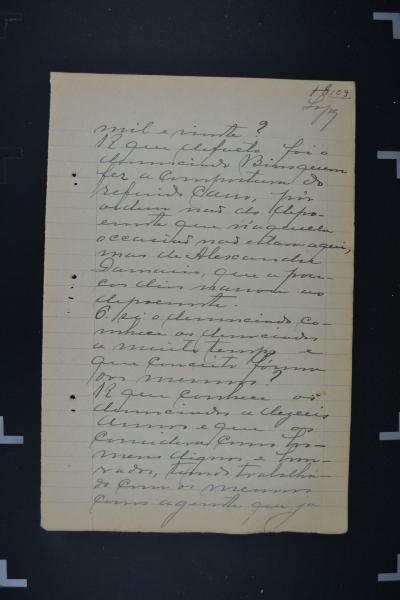 109
mil e vinte?
R que defacto foi o
denunciado Bim quem
fez a compostura do
referido Caso, por
ordem não do depo-
ente que n'aquella
occasião não estava aqui,
mas de Alexandre
Damasio, que a pou-
cos dias narrou ao
depoente.
P. si o denunciado co-
nhece os denunciados
a muito tempo e
que conceito fórma
dos mesmos?
R que conhece os
denunciados a dezeseis
annos e que os
considera como ho-
mens dignos e hon-
rados, tendo trabalha-
do com os mesmos
como agente, que ja